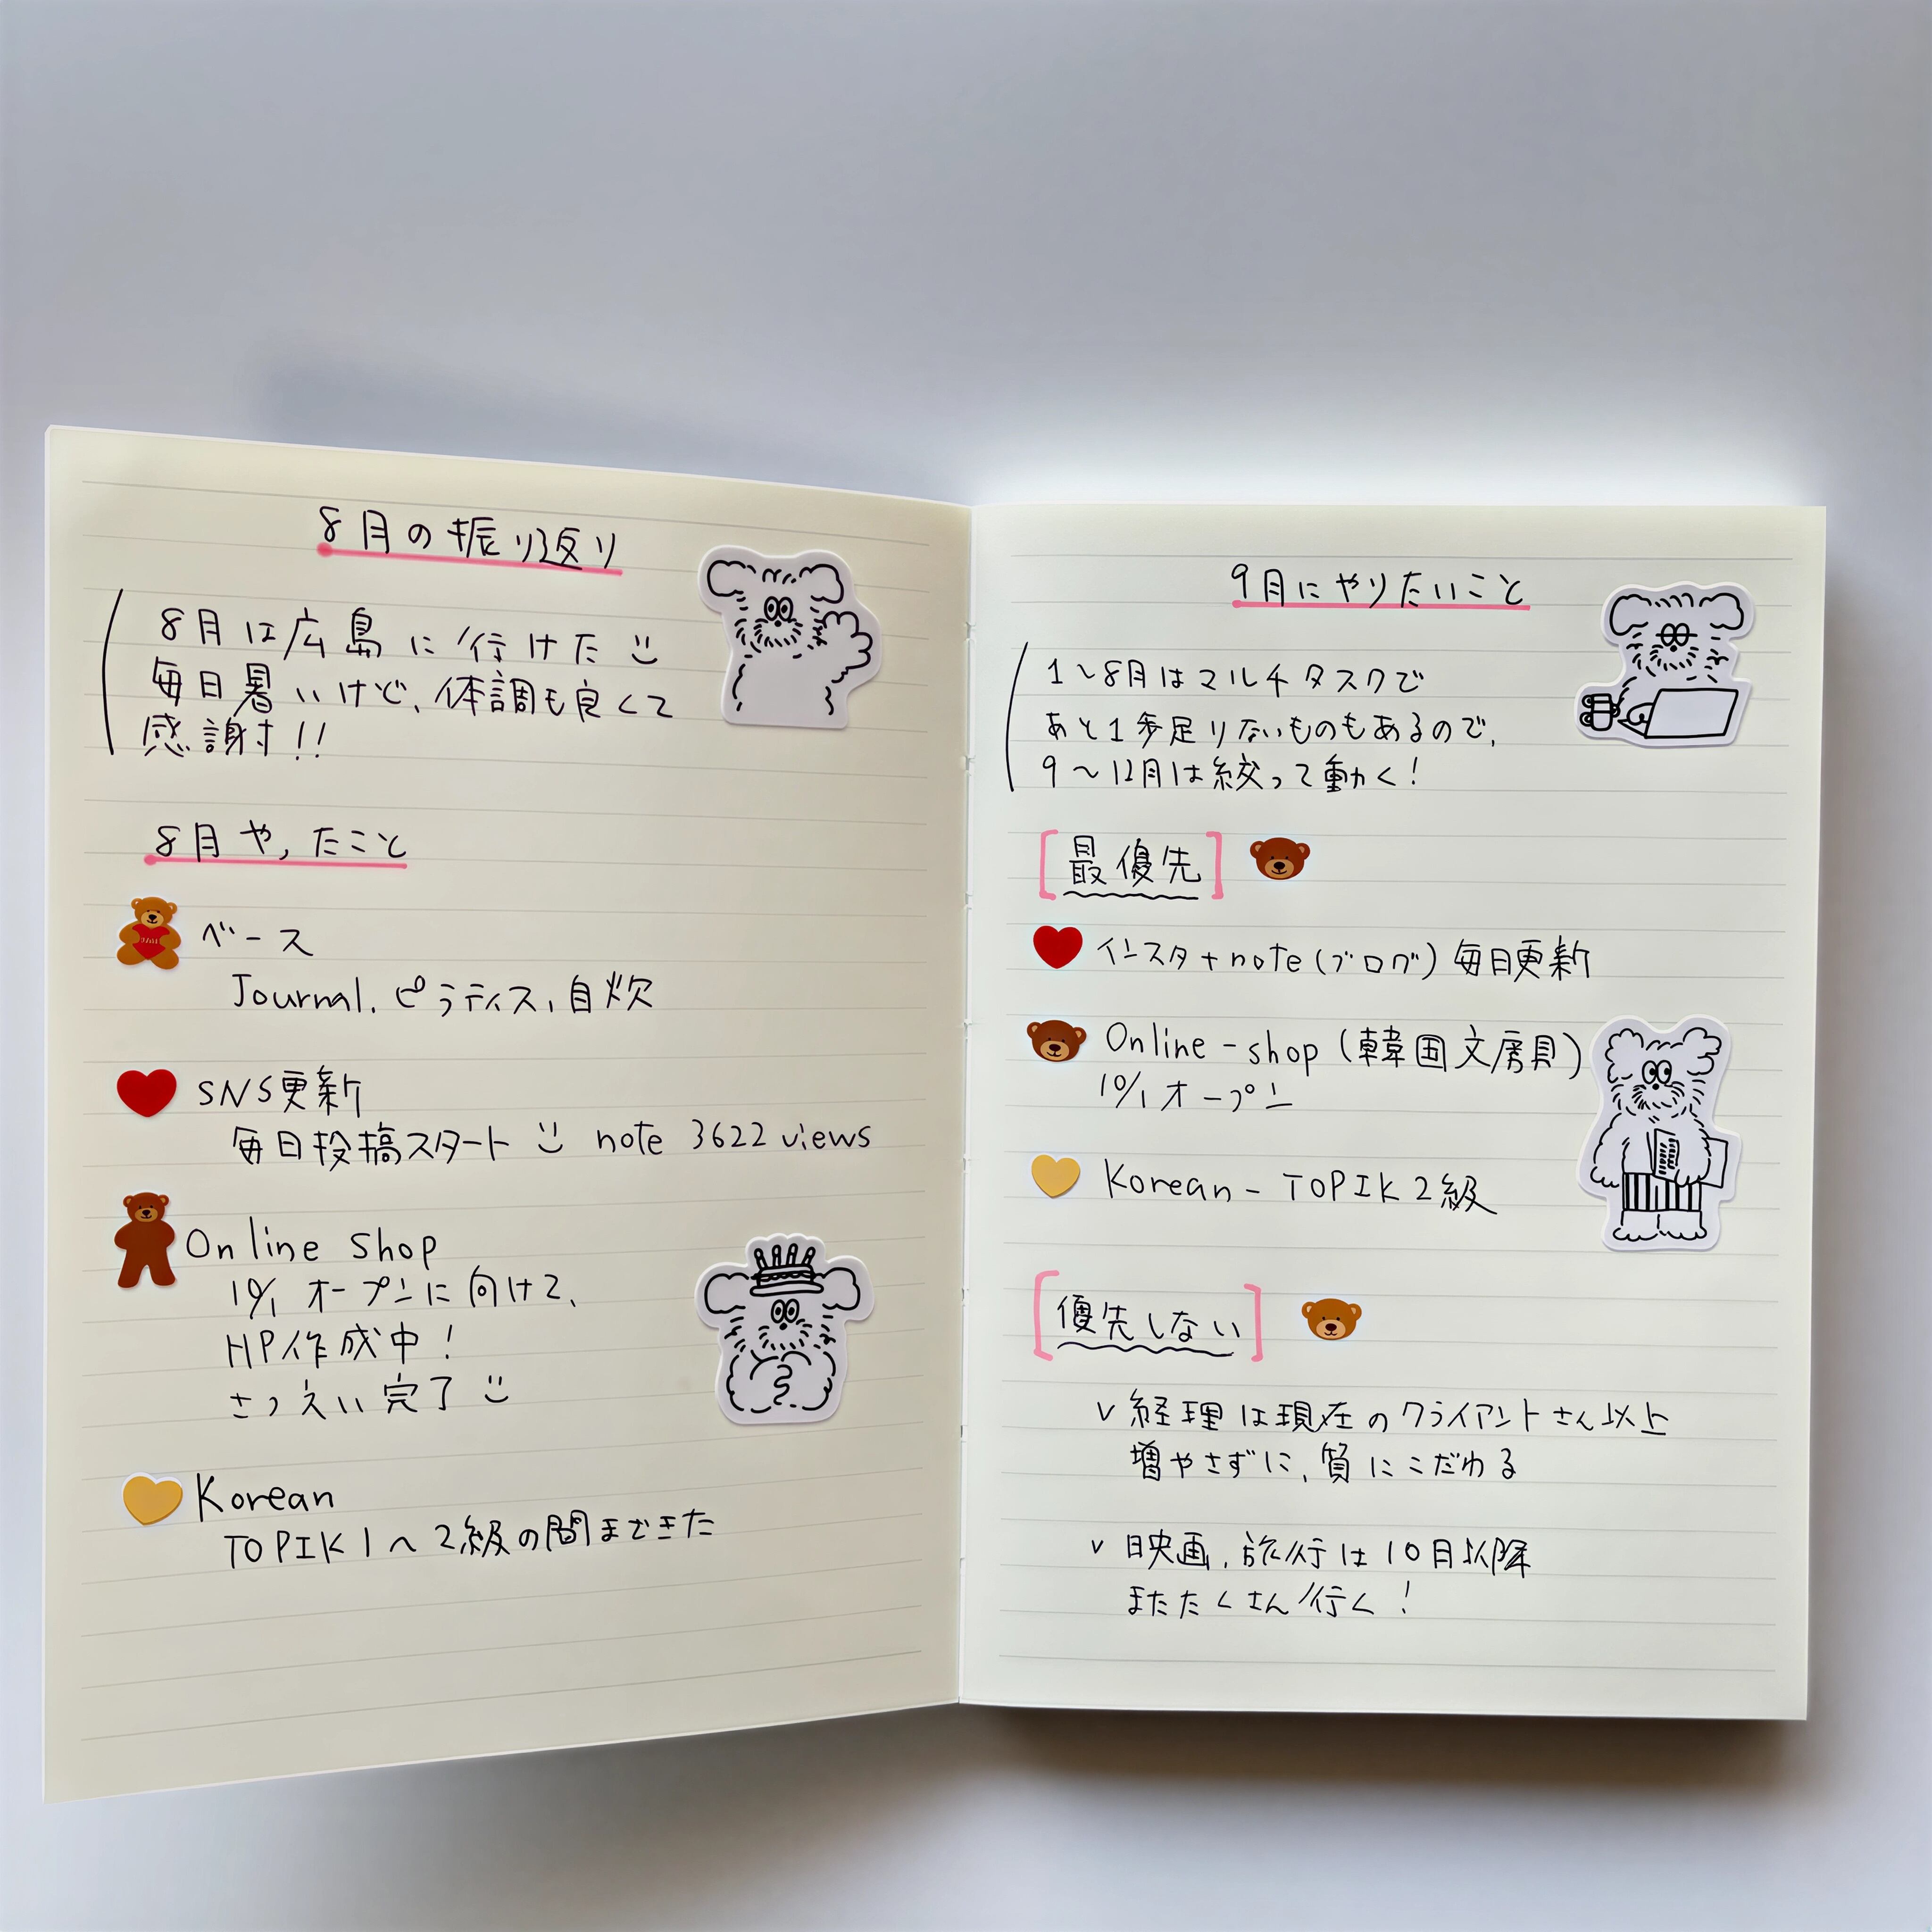 8月の振り返り
8月は広島に行けた
毎日暑いけど、体調も良くて
感謝!!
8月やったこと
ベース
Journal, ピラティス, 自炊
SNS更新
毎日投稿スタート note 3622 views
Online shop
10/1 オープンに向けて、
HP作成中!
さつえい完了
Korean
TOPIK1へ2級の問まできた
9月にやりたいこと
1〜8月はマルチタスクで
あと1歩足りないものもあるので、
9〜12月は絞って動く!
[最優先]
インスタ+note(ブログ)毎日更新
Online-shop(韓国文房具)
10/1オープン
Korean-TOPIK2級
[優先しない]
✓ 経理は現在のクライアントさん以上
増やさずに、質にこだわる
✓ 映画、旅行は10月以降
またたくさん行く!